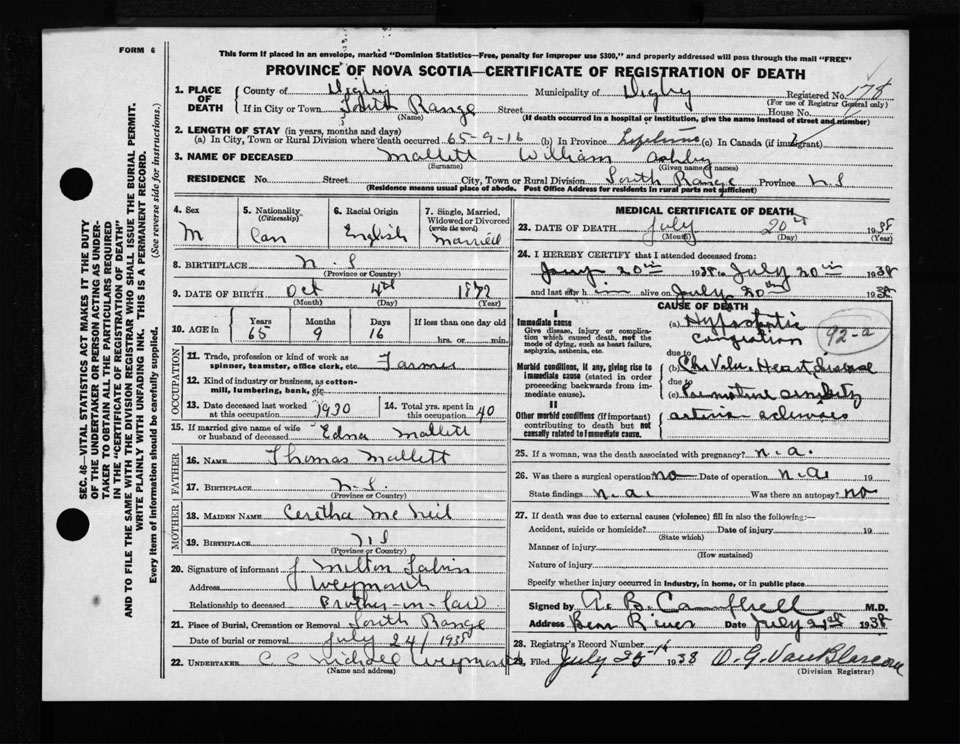 FORM 6
This form if placed in an envelope, marked "Dominion Statistics—Free, penalty for improper use $300," and properly addressed will pass through the mail "FREE"
PROVINCE OF NOVA SCOTIA—CERTIFICATE OF REGISTRATION OF DEATH
1. PLACE OF DEATH
County of Digby Municipality of Digby Registered No. 178
(For use of Registrar General only)
If in City or Town South Range Street House No.
(Name) (If death occurred in a hospital or institution, give the name instead of street and number)
2. LENGTH OF STAY (in years, months and days)
(a) In City, Town or Rural Division where death occurred 65-9-16 (b) In Province Lifetime (c) In Canada (if immigrant)
3. NAME OF DECEASED Mallett William Ashby
(Surname) (Given name or names)
RESIDENCE No. Street City, Town or Rural Division South Range Province N.S
(Residence means usual place of abode. Post Office Address for residents in rural parts not sufficient)
4. Sex M
5. Nationality (Citizenship) Can
6. Racial Origin English
7. Single, Married, Widowed or Divorced (write the word) Married
8. BIRTHPLACE N.S
(Province or Country)
9. DATE OF BIRTH Oct 4th 1872
(Month) (Day) (Year)
10. AGE in Years Months Days If less than one day old
65 9 16 hrs. or min.
OCCUPATION
11. Trade, profession or kind of work as spinner, teamster, office clerk, etc. Farmer
12. Kind of industry or business, as cotton-mill, lumbering, bank, etc.
13. Date deceased last worked at this occupation 1930
14. Total yrs. spent in this occupation 40
15. If married give name of wife or husband of deceased Edna Mallett
FATHER
16. NAME Thomas Mallett
17. BIRTHPLACE N.S.
(Province or Country)
MOTHER
18. MAIDEN NAME Ceretha McNeil
19. BIRTHPLACE N.S
(Province or Country)
20. Signature of informant J Milton
Address Weymouth
Relationship to deceased Brother-in-law
21. Place of Burial, Cremation or Removal South Range
Date of burial or removal July 24/1938
22. UNDERTAKER Weymouth
(Name and address)
MEDICAL CERTIFICATE OF DEATH
23. DATE OF DEATH July 20th 1938
(Month) (Day) (Year)
24. I HEREBY CERTIFY that I attended deceased from:
20th 1938 to July 20th 1938
and last saw him alive on July 20th 1938
CAUSE OF DEATH
I
Immediate cause
Give disease, injury or complication which caused death, not the mode of dying, such as heart failure, asphyxia, asthenia, etc.
(a) Hypostatic Congestion
92-a
due to
Morbid conditions, if any, giving rise to immediate cause (stated in order proceeding backwards from immediate cause).
(b) Heart Disease
due to
(c)
II
Other morbid conditions (if important) contributing to death but not causally related to immediate cause.
25. If a woman, was the death associated with pregnancy? n.a.
26. Was there a surgical operation no Date of operation n.a.
State findings n.a. Was there an autopsy? no
27. If death was due to external causes (violence) fill in also the following:—
Accident, suicide or homicide? Date of injury 19
(State which)
Manner of injury
(How sustained)
Nature of injury
Specify whether injury occurred in industry, in home, or in public place
Signed by A. B. Campbell M.D.
Address Bear River Date July 21st 1938
28. Registrar's Record Number
29. Filed July 25th 1938 O. G. VanBlarcom
(Division Registrar)
SEC. 46—VITAL STATISTICS ACT MAKES IT THE DUTY
OF THE UNDERTAKER OR PERSON ACTING AS UNDER-
TAKER TO OBTAIN ALL THE PARTICULARS REQUIRED
IN THE "CERTIFICATE OF REGISTRATION OF DEATH"
AND TO FILE THE SAME WITH THE DIVISION REGISTRAR WHO SHALL ISSUE THE BURIAL PERMIT.
WRITE PLAINLY WITH UNFADING INK. THIS IS A PERMANENT RECORD.
Every item of information should be carefully supplied. (See reverse side for instructions.)